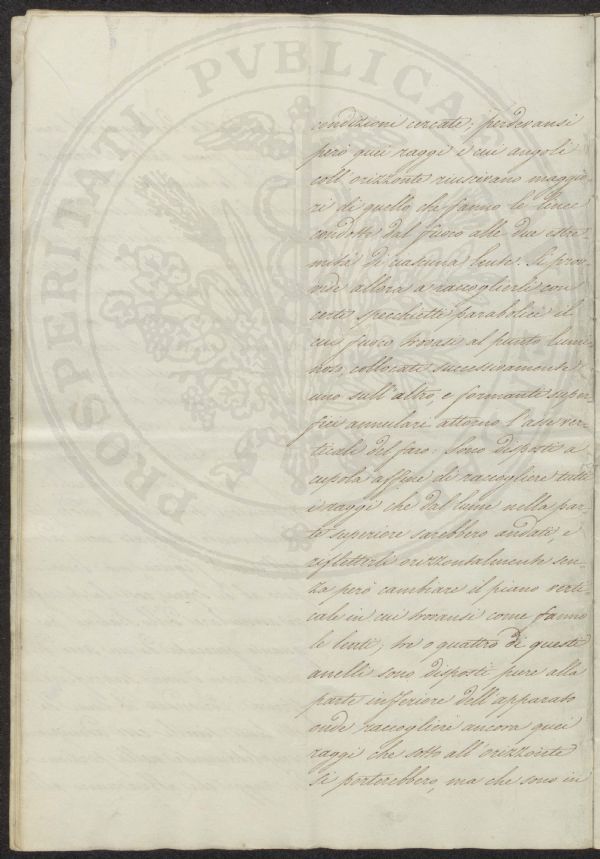 PROSPERITATI PVBLICAE
condizioni cercate; perdevansi
però quei raggi i cui angoli
coll'orizzonte riuscivano maggio-
ri di quello che fanno le linee
condotte dal fuoco alle due estre-
mità di ciascuna lente. Si prov-
vide allora a raccoglierli con
certi specchietti parabolici il
cui fuoco trovasi al punto lumi-
noso, collocati successivamente
uno sull'altro, e formanti super-
fici annulari attorno l'asse ver-
ticale del faro. Sono disposti a
cupola affine di raccogliere tutti
i raggi che dal lume nella par-
te superiore sarebbero andati, e
rifletterli orizzontalmente sen-
za però cambiare il piano verti-
cale in cui trovansi come fanno
le lenti; tre o quattro di questi
anelli sono disposti pure alla
parte inferiore dell'apparato
onde raccogliere ancora quei
raggi che sotto all'orizzonte
si porterebbero, ma che sono in